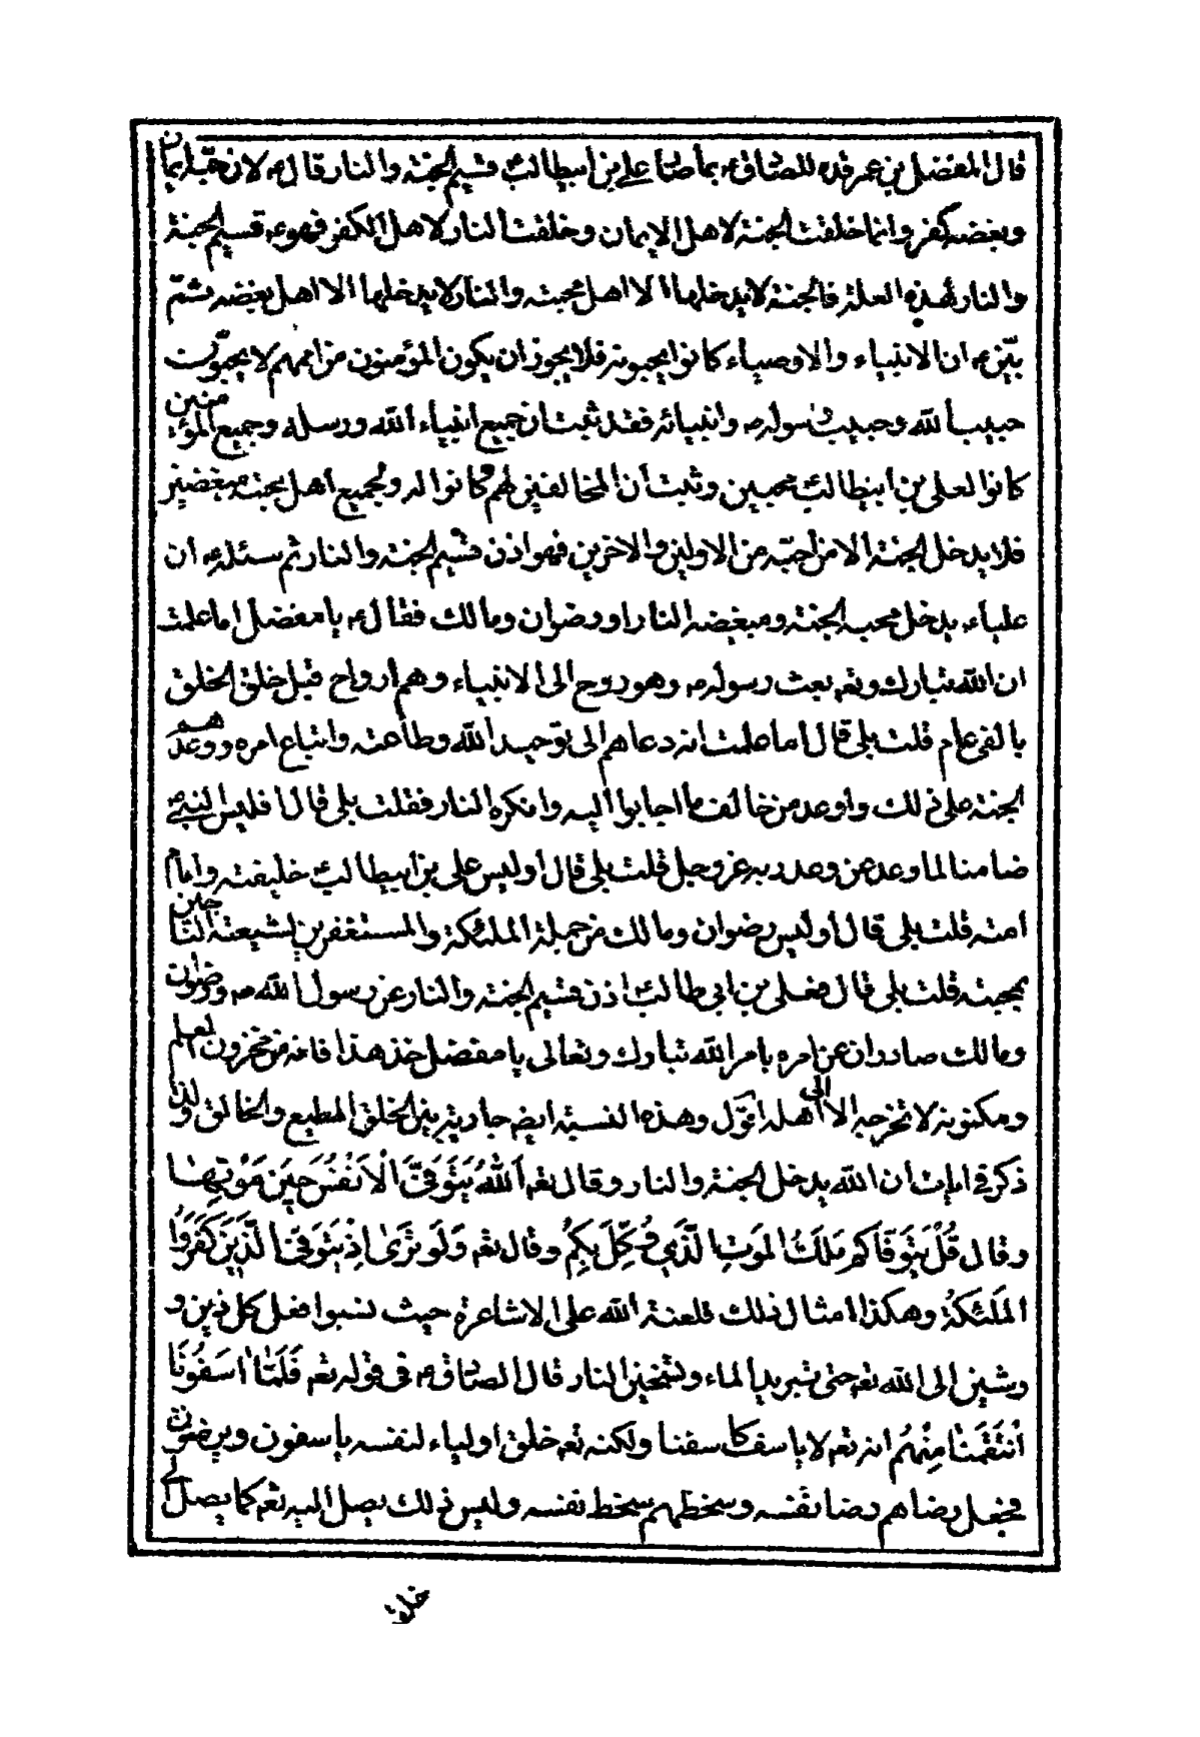 قال المفضل بن عمر قده للصادق ع بما صار علي بن ابيطالب قسيم الجنة والنار قال ع لان حبه ايمان
وبغضه كفر وانما خلقت الجنة لاهل الايمان وخلقت النار لاهل الكفر فهو ع قسيم الجنة
والنار لهذه العلة فالجنة لا يدخلها الا اهل محبته والنار لا يدخلها الا اهل بغضه ثم
بين ع ان الانبياء والاوصياء كانوا يحبونه فلا يجوز ان يكون المؤمنون من اممهم لا يحبون
حبيب الله وحبيب رسوله ص وانبيائه فقد ثبت ان جميع انبياء الله ورسله وجميع المؤمنين
كانوا لعلي بن ابيطالب محبين وثبت ان المخالفين لهم كانوا له ولجميع اهل محبته مبغضين
فلا يدخل الجنة الا من احبه من الاولين والاخرين فهو اذن قسيم الجنة والنار ثم سئله ع ان
علياء ع يدخل محبه الجنة ومبغضه النار او رضوان ومالك فقال ع يا مفضل اما علمت
ان الله تبارك وتع بعث رسوله ص وهو روح الى الانبياء وهم ارواح قبل خلق الخلق
بالفى عام قلت بلى قال اما علمت انه دعاهم الى توحيد الله وطاعته واتباع امره ووعدهم
الجنة على ذلك واوعد من خالف ما اجابوا اليه وانكره النار فقلت بلى قال افليس النبي ص
ضامنا لما وعد عن وعد ربه عز وجل قلت بلى قال اوليس علي بن ابيطالب خليفته وامام
امته قلت بلى قال اوليس رضوان ومالك من جملة الملئكة والمستغفرين لشيعته الناجين
بمحبته قلت بلى قال فعلي بن ابي طالب اذن قسيم الجنة والنار عن رسول الله ص ورضوان
ومالك صادران عن امره بامر الله تبارك وتعالى يا مفضل خذ هذا فانه من مخزون العلم
ومكنونه لا تخرجه الا الى اهله اقول وهذه النسبة ايضا جارية بين الخلق المطيع والخالق ولذا
ذكر في ايات ان الله يدخل الجنة والنار وقال تع اَللّٰهُ يَتَوَفَّى الْاَنْفُسَ حِينَ مَوْتِهَا
وقال قُلْ يَتَوَفَّاكُم مَلَكُ المَوتِ الَّذِي وُكِّلَ بِكُمْ وقال تع وَلَو تَرَىٰ اِذْ يَتَوَفَّى الَّذِينَ كَفَرُوا
المَلٰئكَةُ وهكذا امثال ذلك فلعنة الله على الاشاعرة حيث نسبوا فعل كل زين و
وشين الى الله تع حتى تبريد الماء وتسخين النار قال الصادق ع في قوله تع فَلَمَّا اَسَفُونَا
اَنْتَقَمْنَا مِنْهُم انه تع لا ياسف كاسفنا ولكنه تع خلق اولياء لنفسه ياسفون ويرضون
فجعل رضاهم رضا نفسه وسخطهم سخط نفسه وليس ذلك يصل اليه تع كما يصل الى
خلقه